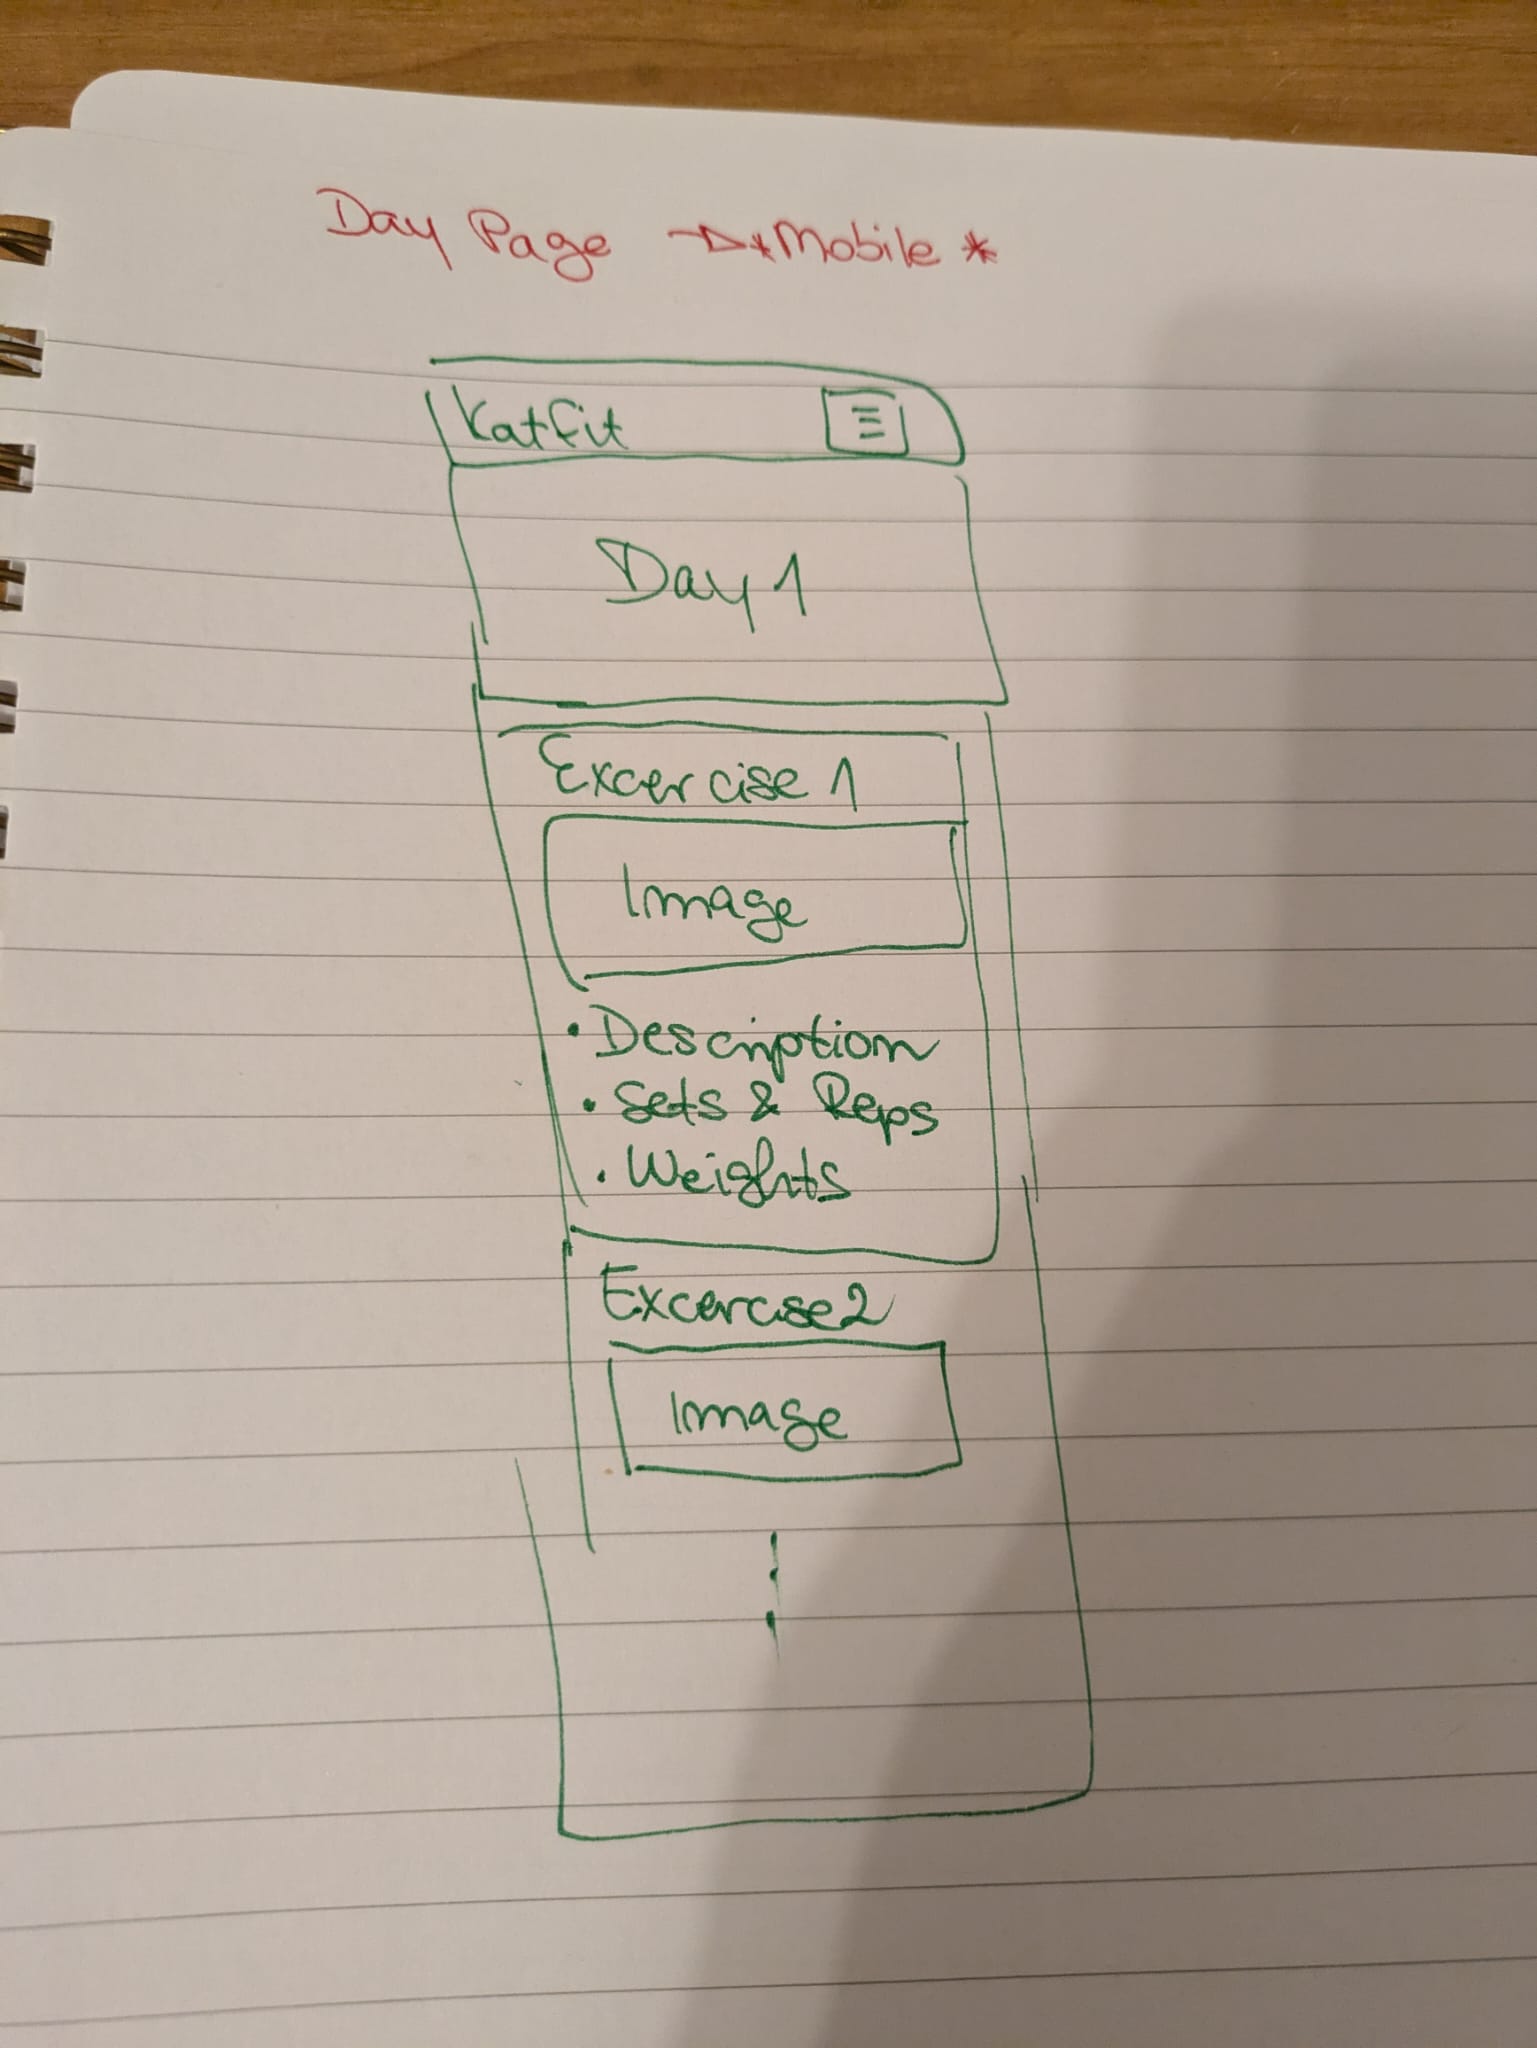 Day Page → *Mobile *
Katfit
Day 1
Excercise 1
Image
• Description
• Sets & Reps
• Weights
Excercise 2
Image